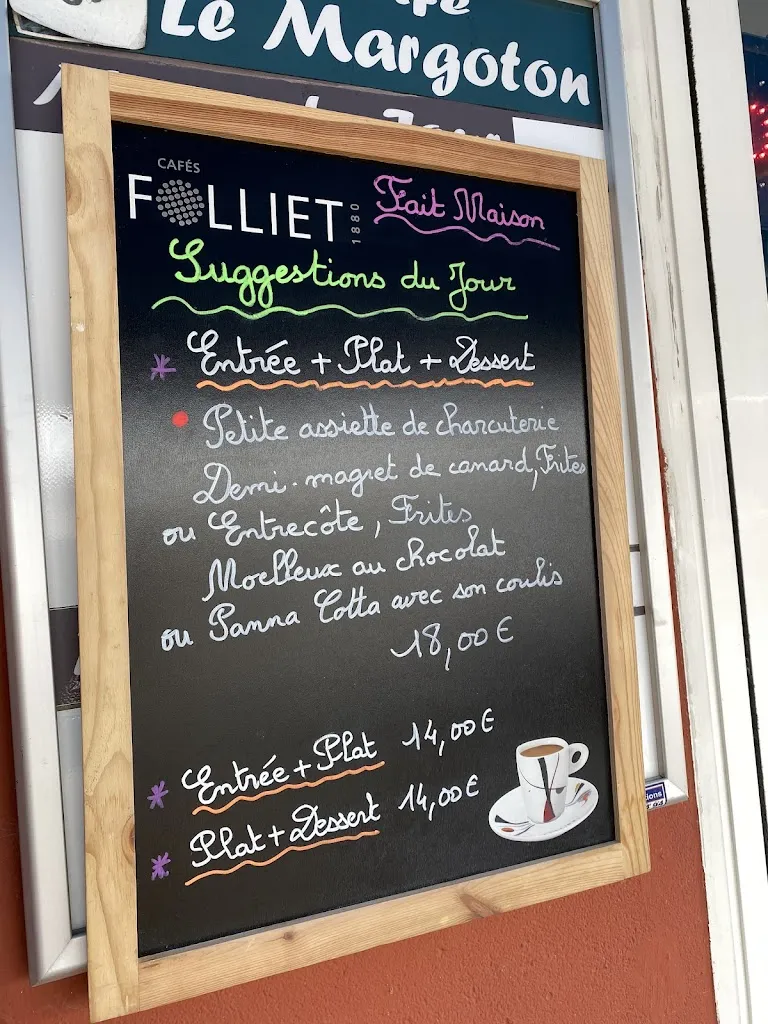 Le Margoton
CAFÉS
FOLLIET 1880
Fait Maison
Suggestions du Jour
* Entrée + Plat + Dessert
• Petite assiette de charcuterie
Demi-magret de canard, Frites
ou Entrecôte, Frites
Moelleux au chocolat
ou Panna Cotta avec son coulis
18,00 €
* Entrée + Plat 14,00 €
* Plat + Dessert 14,00 €